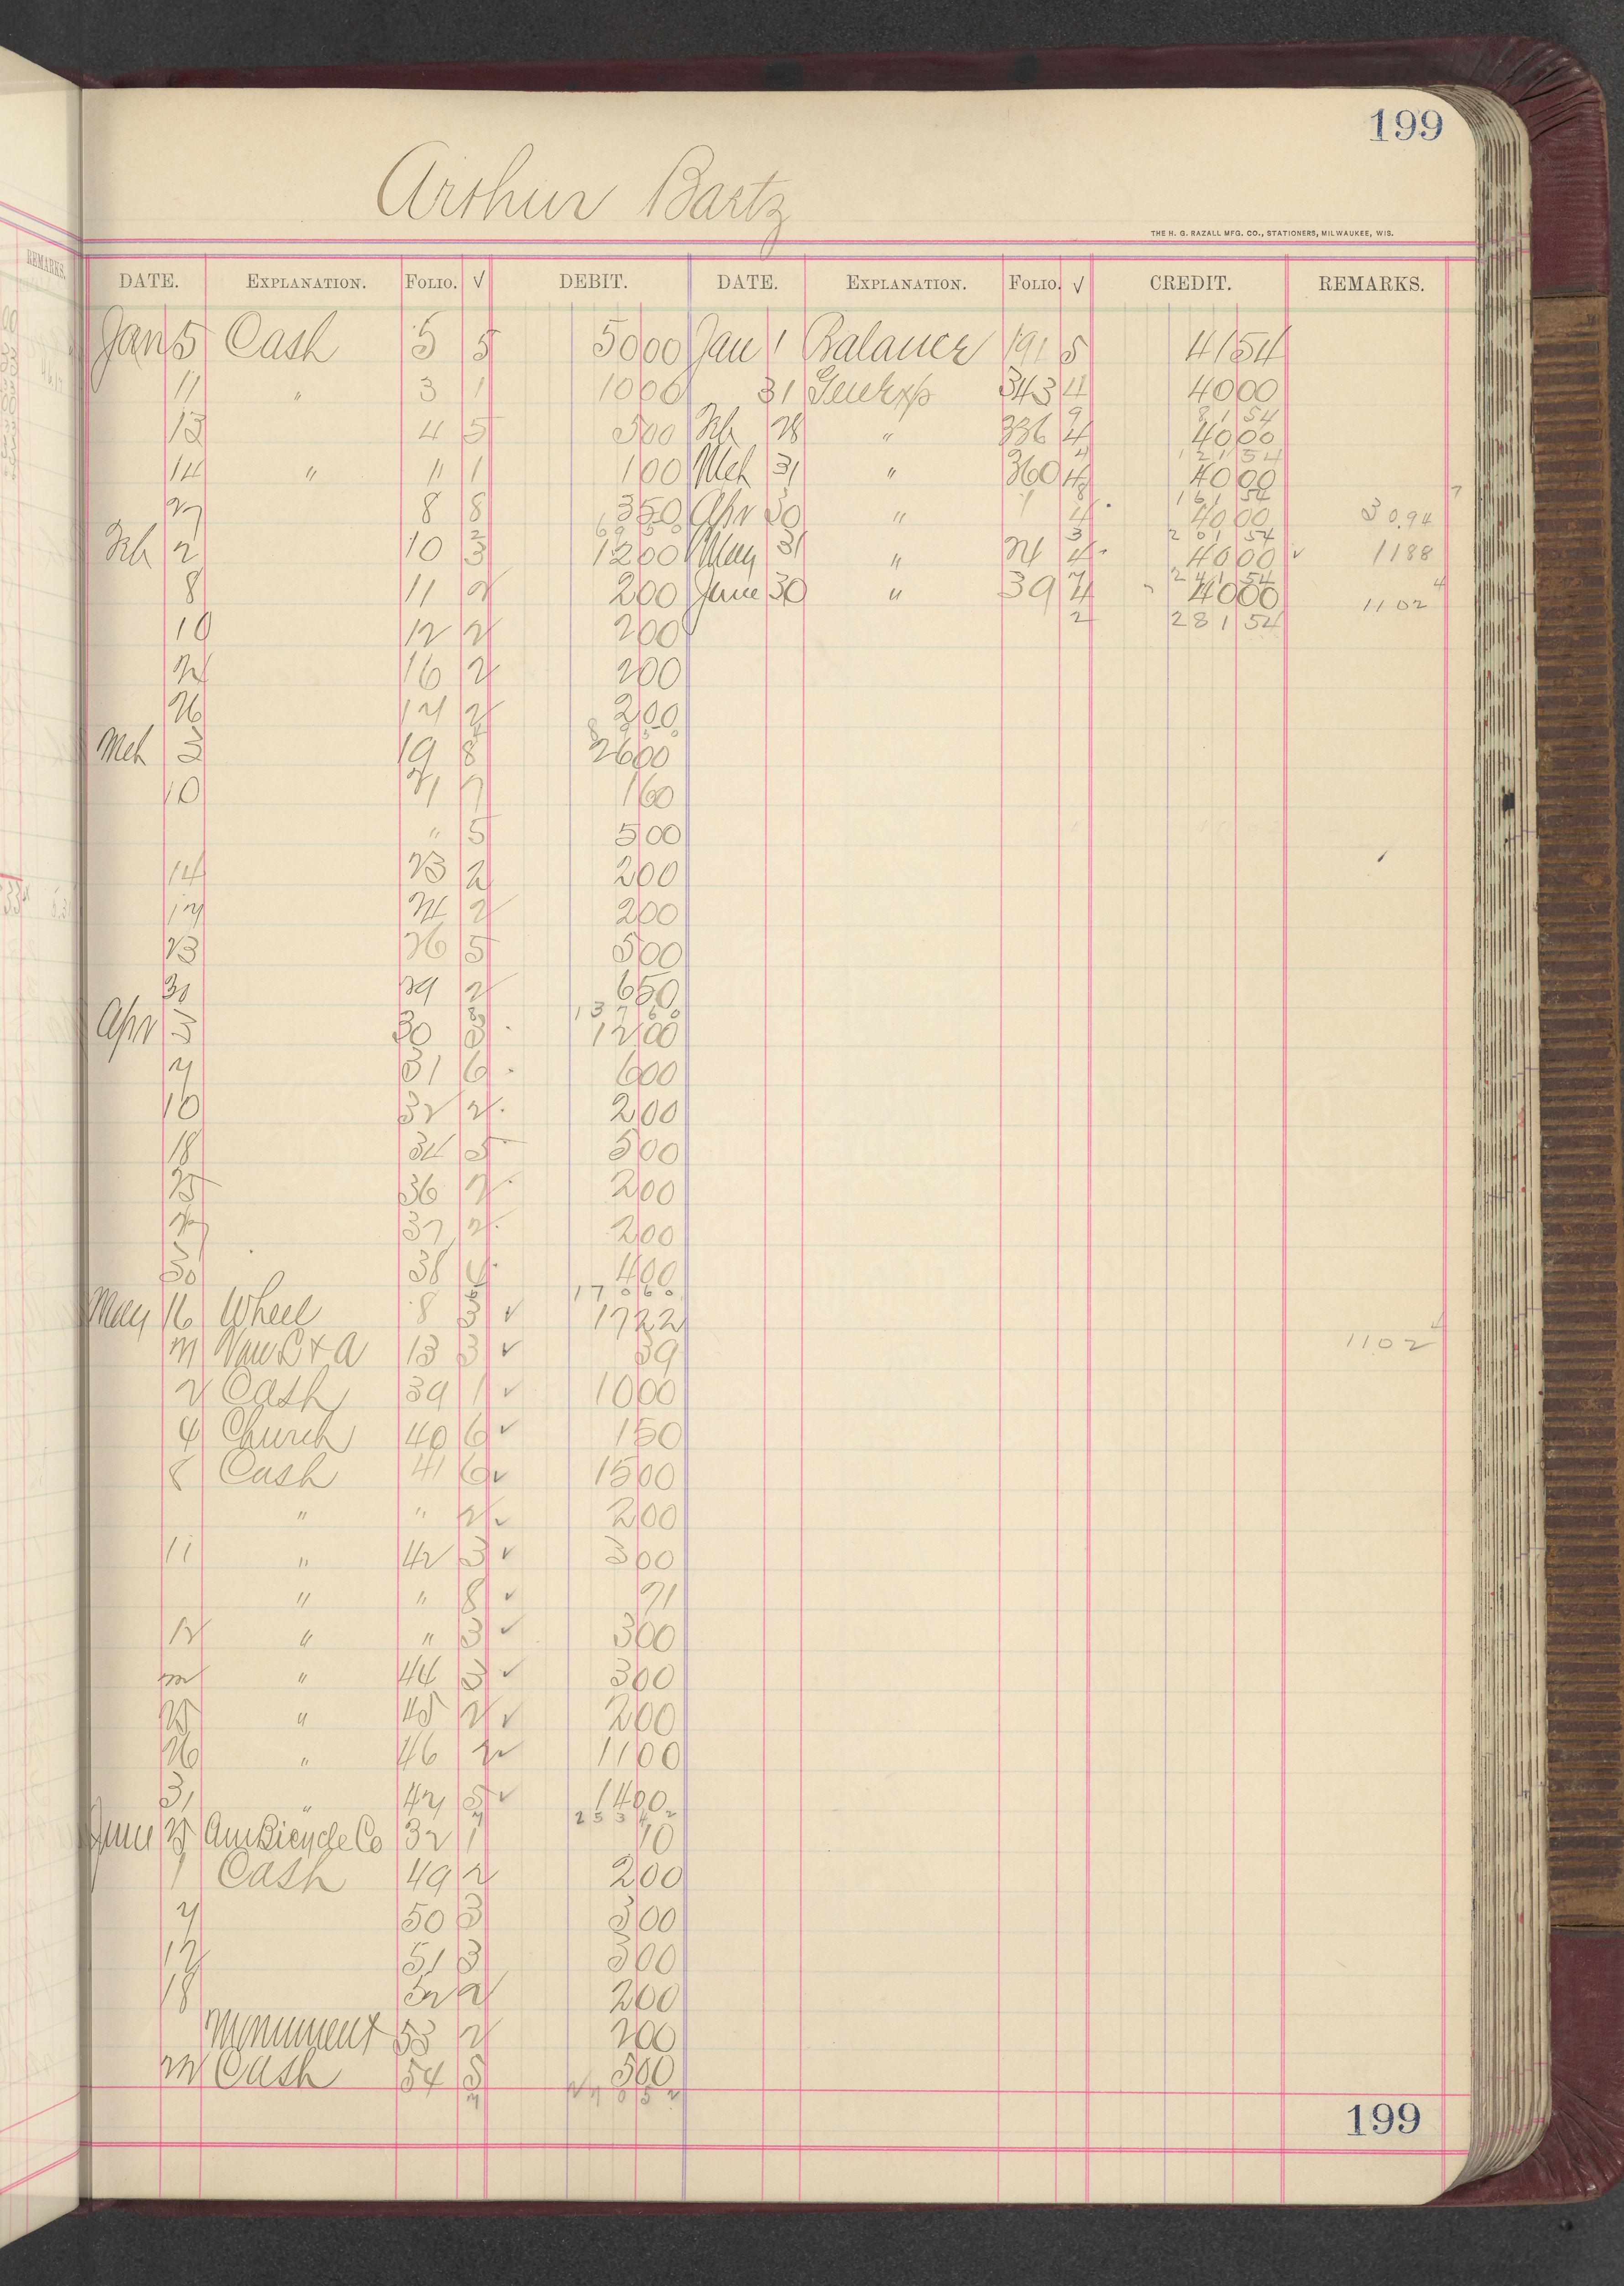 199
Arthur Bartz
THE H. G. RAZALL MFG. CO., STATIONERS, MILWAUKEE, WIS.
REMARKS.
DATE. EXPLANATION. FOLIO. √ DEBIT. DATE. EXPLANATION. FOLIO. √ CREDIT. REMARKS.
Jan 5 Cash 5 5 5000 Jan 1 Balance 191 5 4154
11 " 3 1 1000 31 Genl Exp 343 4 4000
9 81 54
13 4 5 500 Feb 28 " 336 4 4000
4 121 54
14 " 11 1 100 Mch 31 " 360 4 4000
8 161 54
27 8 8 350 Apr 30 " 1 4 4000 3094 7
2 69 50 3 201 54
Feb 2 10 3 1200 May 31 " 24 4 4000 √ 1188
7 241 54
8 11 2 200 June 30 " 39 4 4000 1102 4
10 12 2 200 2 281 54
24 16 2 200
26 17 2 200
Mch 3 19 8 2600
10 21 7 160
" 5 500
14 23 2 200
17 24 2 200
23 26 5 500
31 29 2 650
8 137 60
Apr 3 30 3 1200
7 31 6 600
10 32 2 200
18 34 5 500
25 36 2 200
27 37 2 200
30 38 4 400
6 170 60
May 16 Wheel 8 3 √ 1722
13 3 √ 39 1102 4
2 Cash 39 1 √ 1000
4 Church 40 6 √ 150
8 Cash 41 6 √ 1500
" " 2 √ 200
11 " 42 3 √ 300
" " 8 √ 71
12 " " 3 √ 300
22 " 44 3 √ 300
25 " 45 2 √ 200
26 " 46 2 √ 1100
31 " 47 5 √ 1400
7 253 42
June 25 Am Bicycle Co 32 1 10
1 Cash 49 2 200
7 50 3 300
12 51 3 300
18 52 2 200
Monument 53 2 200
22 Cash 54 5 500
7 270 52
199